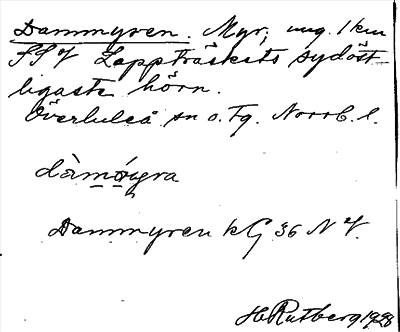 Dammyren. Myr, ung. 1 km
SSV Lappträskets sydöst-
ligaste hörn.
Överluleå sn o. Tg. Norrb. l.
dàmmýra
Dammyren kG 36 NV.
H Rutberg 1928